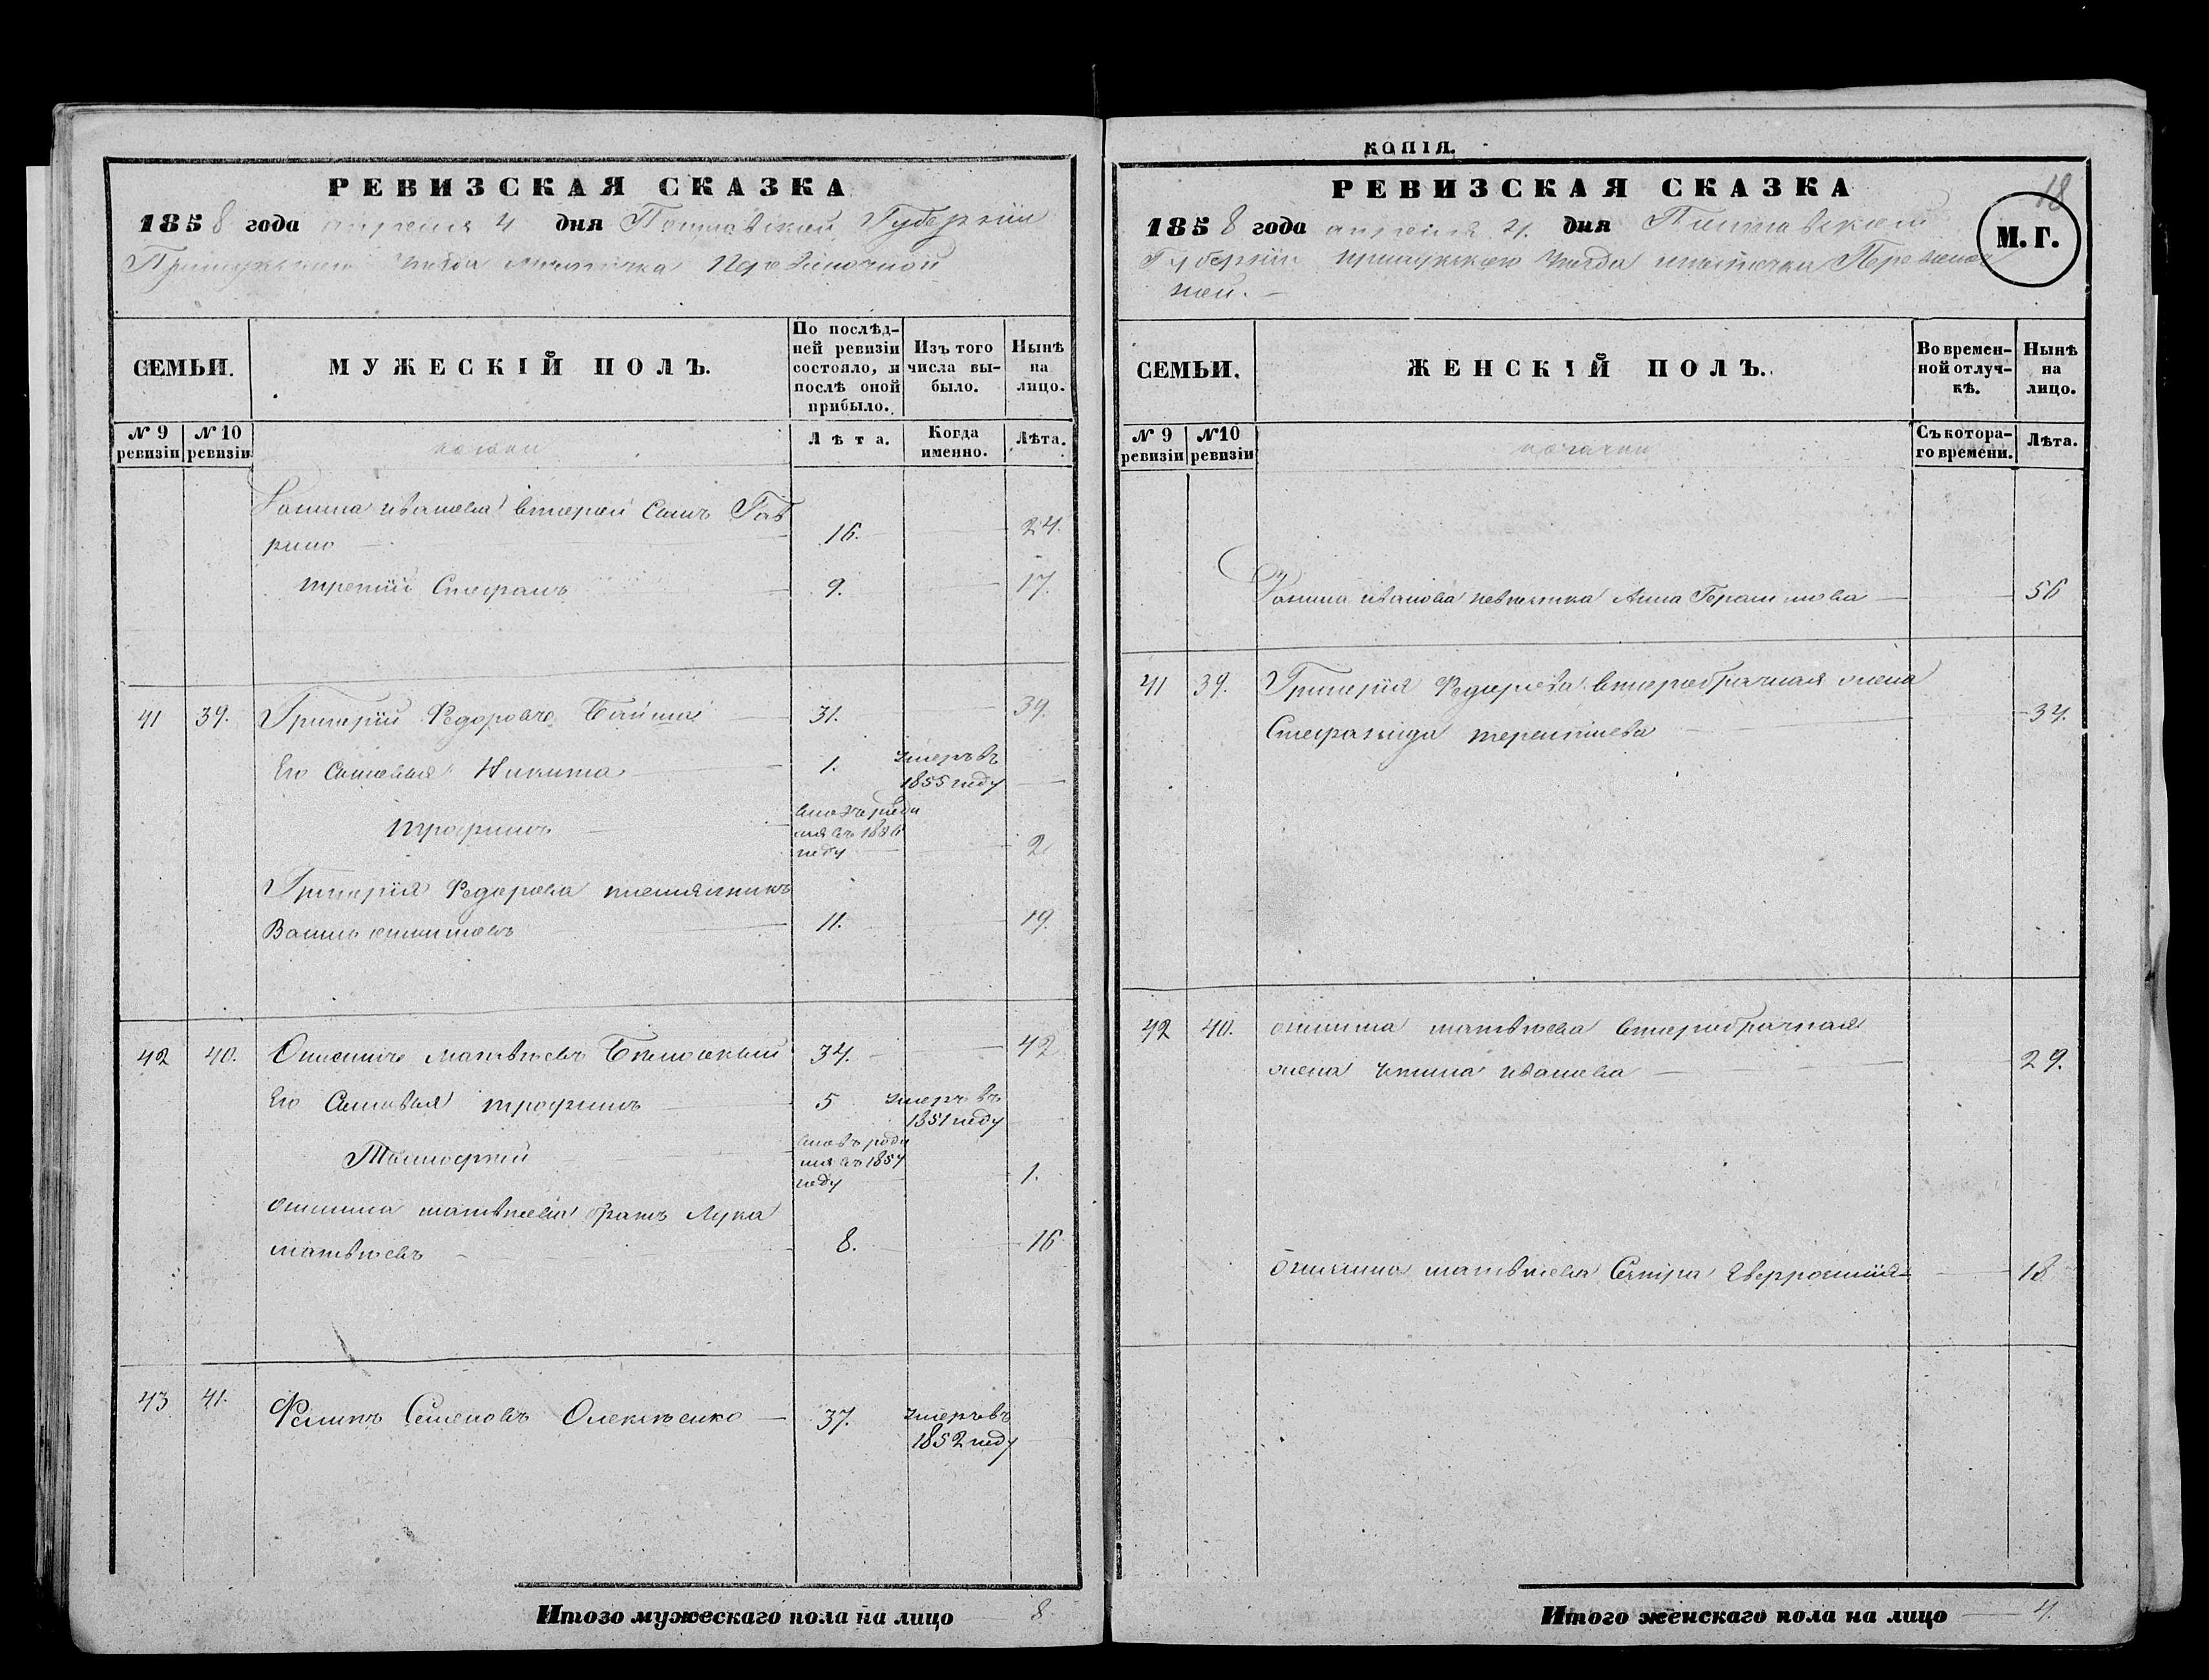 РЕВИЗСКАЯ СКАЗКА
1858 года апреля 4 дня Полтавской Губернии
Прилукского уезда местечка Переволочной
СЕМЬИ.
МУЖЕСКІЙ ПОЛЪ.
По послѣд-
ней ревизіи
состояло, и
послѣ оной
прибыло.
Изъ того
числа вы-
было.
Нынѣ
на
лицо.
№ 9
ревизіи
№ 10
ревизіи
казаки
Лѣта.
Когда
именно.
Лѣта.
Фомина иванова второй Сынъ Гав
рило 16. 24.
третий Стефанъ 9. 17.
41 39. Григорій Федоровъ 31. 39.
Его Сыновья Никита 1. умеръ въ
1855 году
Трофимъ вновь роди
лся въ 1856
году 2
Григорія Федорова племянникъ
Василь 11. 19.
42 40. Онисимъ матвѣевъ 34. 42
Его Сыновья трофимъ 5 умеръ въ
1851 году
Тимофей вновь роди
лся въ 1857
году 1.
Онисима матвѣева братъ Лука
матвѣевъ 8. 16
43 41. Филипъ Семеновъ Олексѣенко 37. умеръ въ
1852 году
Итого мужескаго пола на лицо 8.
КОПІЯ.
18
РЕВИЗСКАЯ СКАЗКА
1858 года апреля 4. дня Полтавской
Губерніи прилукского уезда местечка Переволоч
ной.
М. Г.
СЕМЬИ.
ЖЕНСКІЙ ПОЛЪ.
Во времен-
ной отлуч-
кѣ.
Нынѣ
на
лицо.
№ 9
ревизіи
№10
ревизіи
казачки
Съ котора-
го времени.
Лѣта.
Фомина иванова невѣстка Анна Герасимова 56
41 39. Григорія Федорова второбрачная жена
Стефанида терентиева 34.
42 40. онисима матвѣева второбрачная
жена иванова 29.
Онисима матвѣева Сестра 18
Итого женскаго пола на лицо 4.